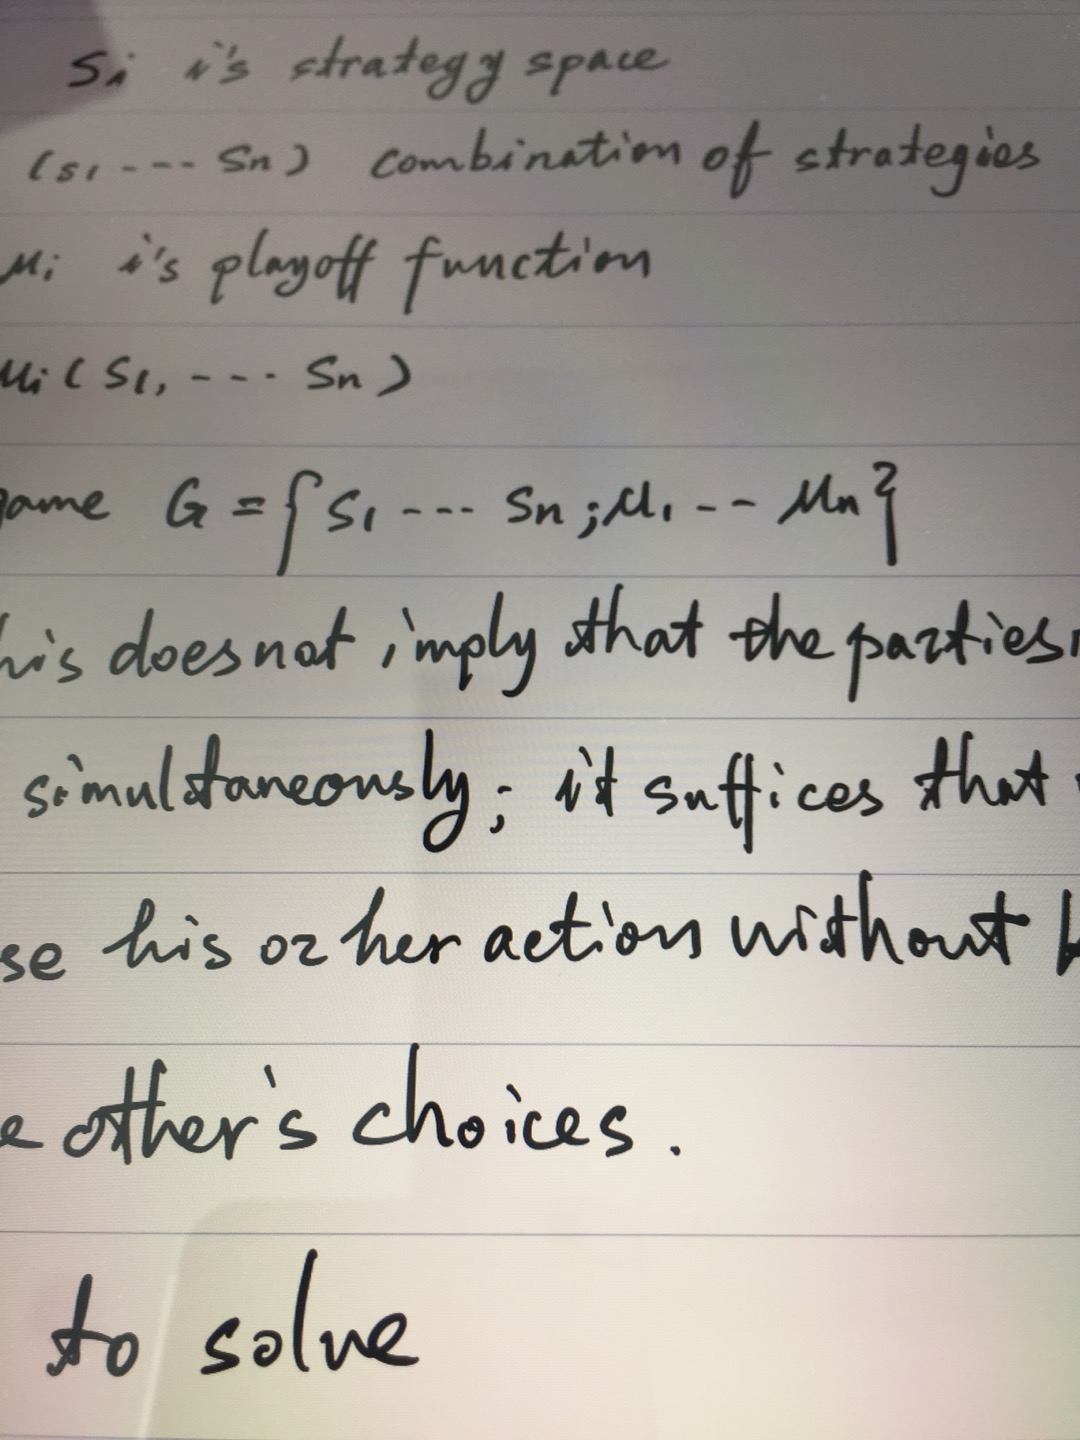 Si i's strategy space
(s1 --- sn) combination of strategies
ui i's playoff function
ui (s1, --- sn)
game G = {S1 --- Sn ; u1 -- un}
his does not imply that the parties
simultaneously; it suffices that
se his or her action without b
e other's choices.
to solve